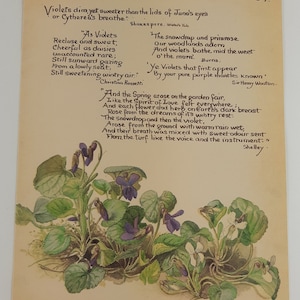 Violets dim, yet sweeter than the lids of Juno's eyes
or Cytherea's breathe."
Shakespere.
"As Violets
Recluse and sweet,
Cheerful as daisies
unaccounted rare,
Still sunward gazing
From a lowly seat,
Still sweetening wintry air."
Christina Rossetti.
"The snowdrop and primrose
Our woodlands adorn
And violets bathe in the weet
O' the morn. Burns.
"Ye Violets that first appear
By your pure purple mantles known."
Sir Henry Wootton.
"And the Spring arose on the garden fair,
Like the Spirit of Love felt everywhere,
And each flower and herb on Earth's dark breast
Rose from the dreams of its wintry rest:
The snowdrop and then the violet,
Arose from the ground with warm rain wet,
And their breath was mixed with sweet odour sent
From the turf like the voice and the instrument."
Shelley.